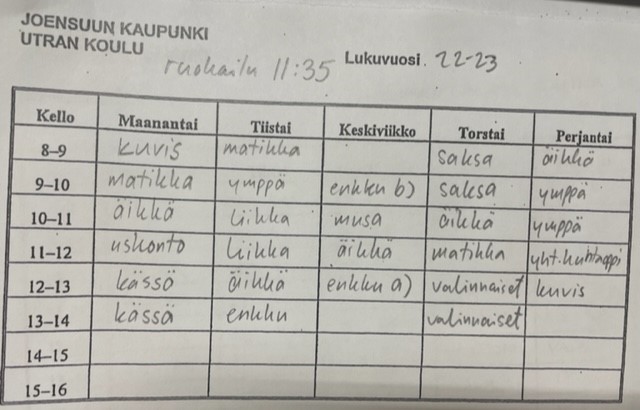 JOENSUUN KAUPUNKI
UTRAN KOULU
ruokailu 11:35 Lukuvuosi. 22-23
Kello Maanantai Tiistai Keskiviikko Torstai Perjantai
8–9 kuvis matikka saksa äikkä
9–10 matikka ymppä enkku b) saksa ymppä
10–11 äikkä liikka musa äikkä ymppä
11–12 uskonto liikka äikkä matikka yht.kuhtappi
12–13 kässä äikkä enkku a) valinnaiset kuvis
13–14 kässä enkku valinnaiset
14–15
15–16